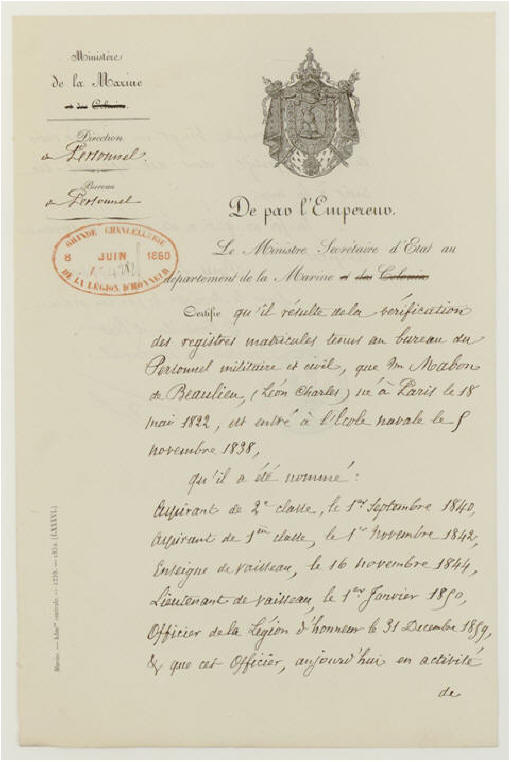 Ministère
de la Marine
et des Colonies.
Direction
du Personnel.
Bureau
du Personnel
GRANDE CHANCELLERIE
8 JUIN 1860
DE LA LÉGION D'HONNEUR
De par l'Empereur.
Le Ministre Secrétaire d'Etat au
département de la Marine et des Colonies
Certifie qu'il résulte de la vérification
des registres matricules tenus au bureau du
Personnel militaire et civil, que Mr Mabon
de Beaulieu, (Léon Charles) né à Paris le 18
mai 1822, est entré à l'Ecole navale le 5
novembre 1838,
qu'il a été nommé :
Aspirant de 2e classe, le 1er Septembre 1840,
Aspirant de 1ère classe, le 1er Novembre 1842,
Enseigne de vaisseau, le 16 novembre 1844,
Lieutenant de vaisseau, le 1er Janvier 1850,
Officier de la Légion d'honneur le 31 Décembre 1859,
& que cet Officier, aujourd'hui en activité
de